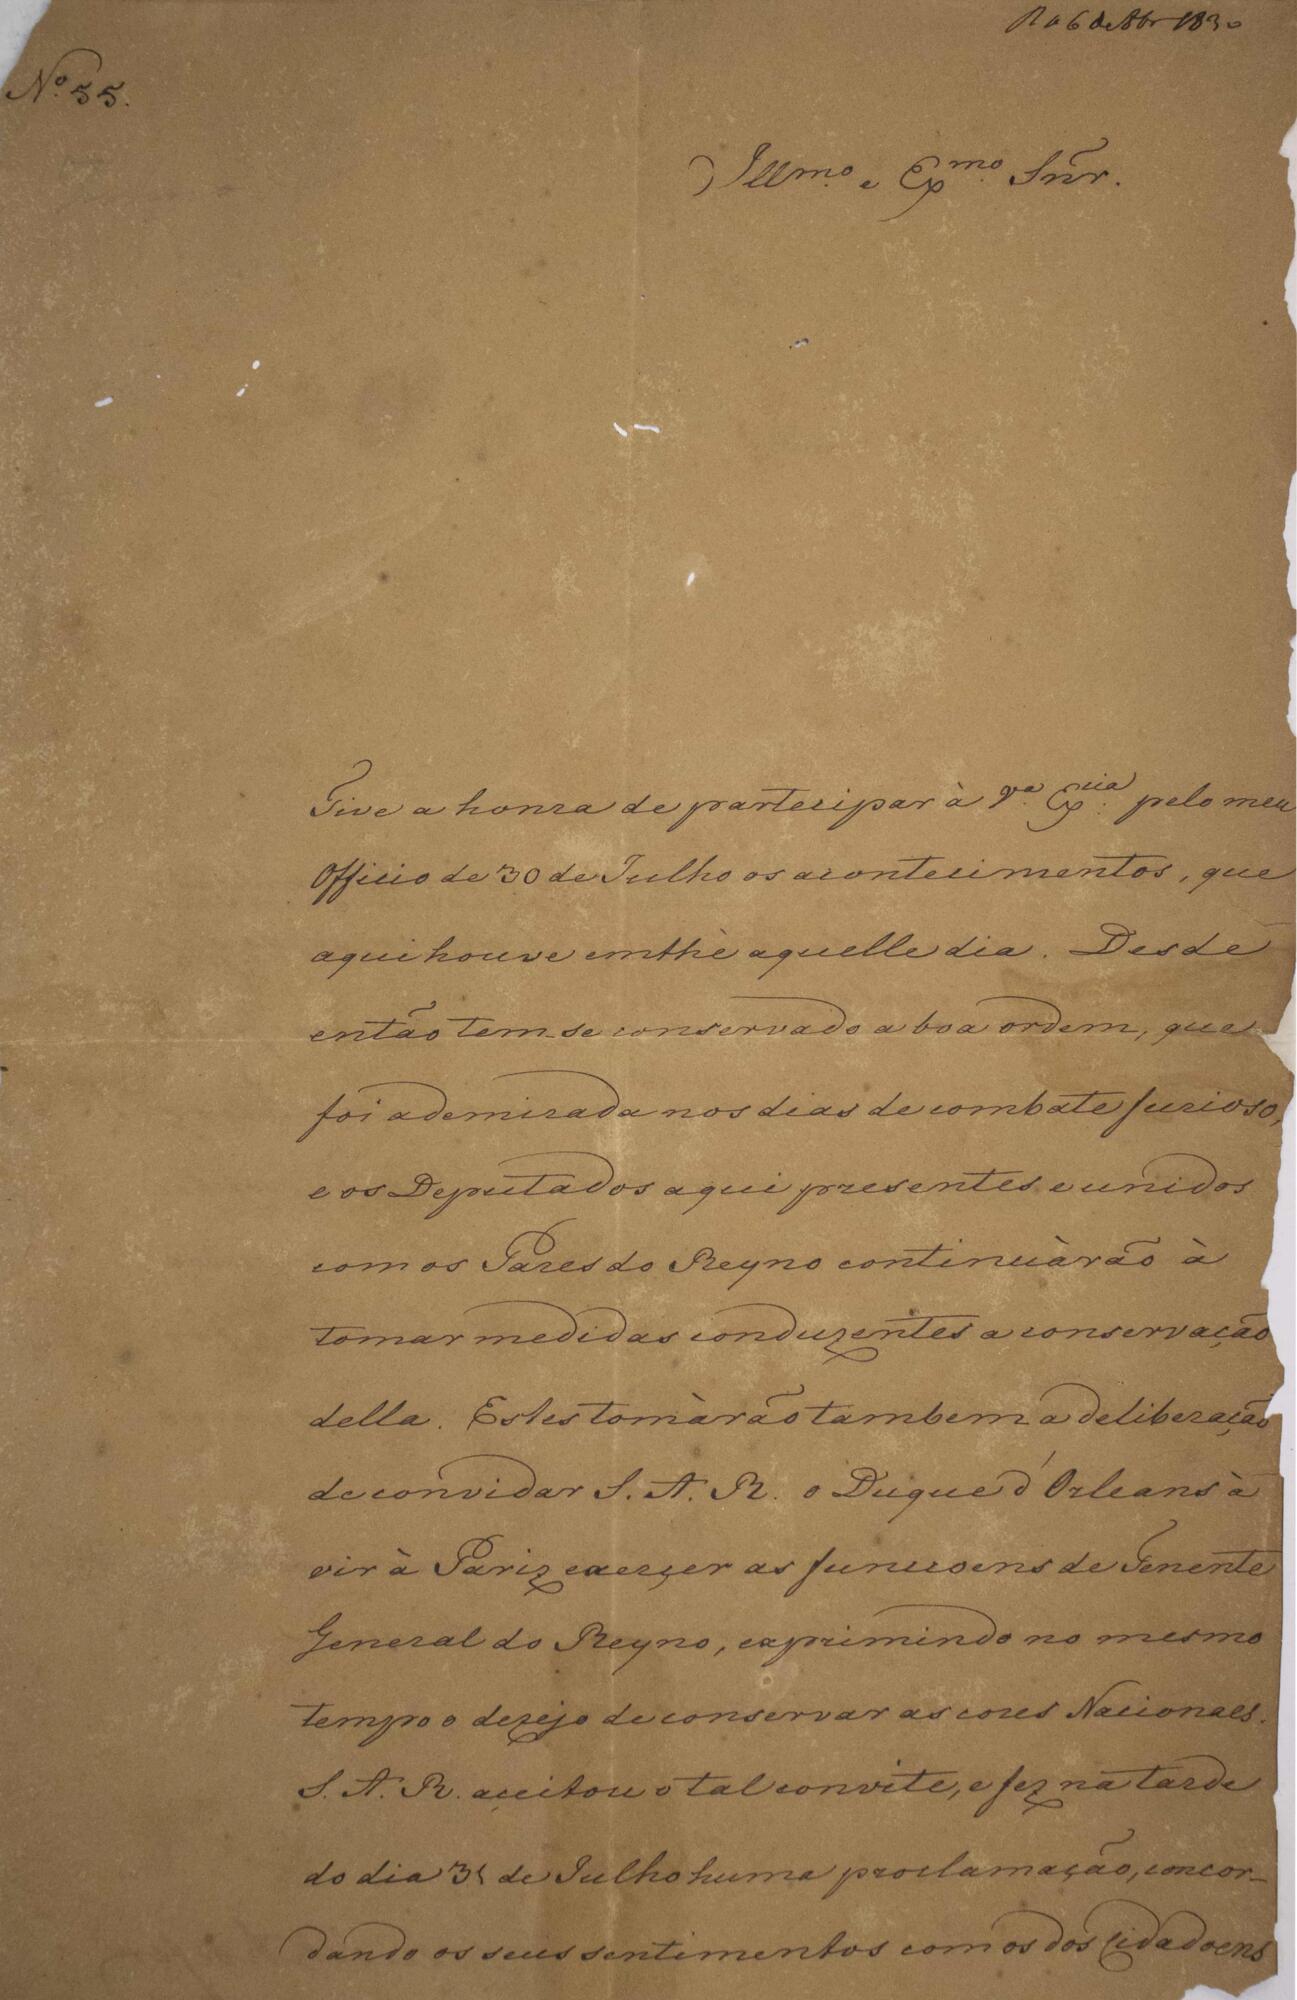 R a 6 de Abr 1830
Nº 55.
Illmo. e Exmo. Snr.
Tive a honra de partecipar à Va. Excia. pelo meu
Officio de 30 de Julho os acontecimentos, que
aqui houve emthè aquelle dia. Desde
então tem-se conservado a boa ordem, que
foi ademirada nos dias de combate furioso,
e os Deputados aqui presentes e unidos
com os Pares do Reyno continuàrão à
tomar medidas conduzentes a conservação
della. Estes tomàrão tambem a deliberação
de convidar S. A. R. o Duque d'Orleans à
vir à Pariz exerçer as funcoens de Tenente
General do Reyno, exprimindo no mesmo
tempo o dezejo de conservar as cores Nacionaes.
S. A. R. açeitou o tal convite, e fez na tarde
do dia 31 de Julho huma proclamação, concor-
dando os seus sentimentos com os dos Cidadoens